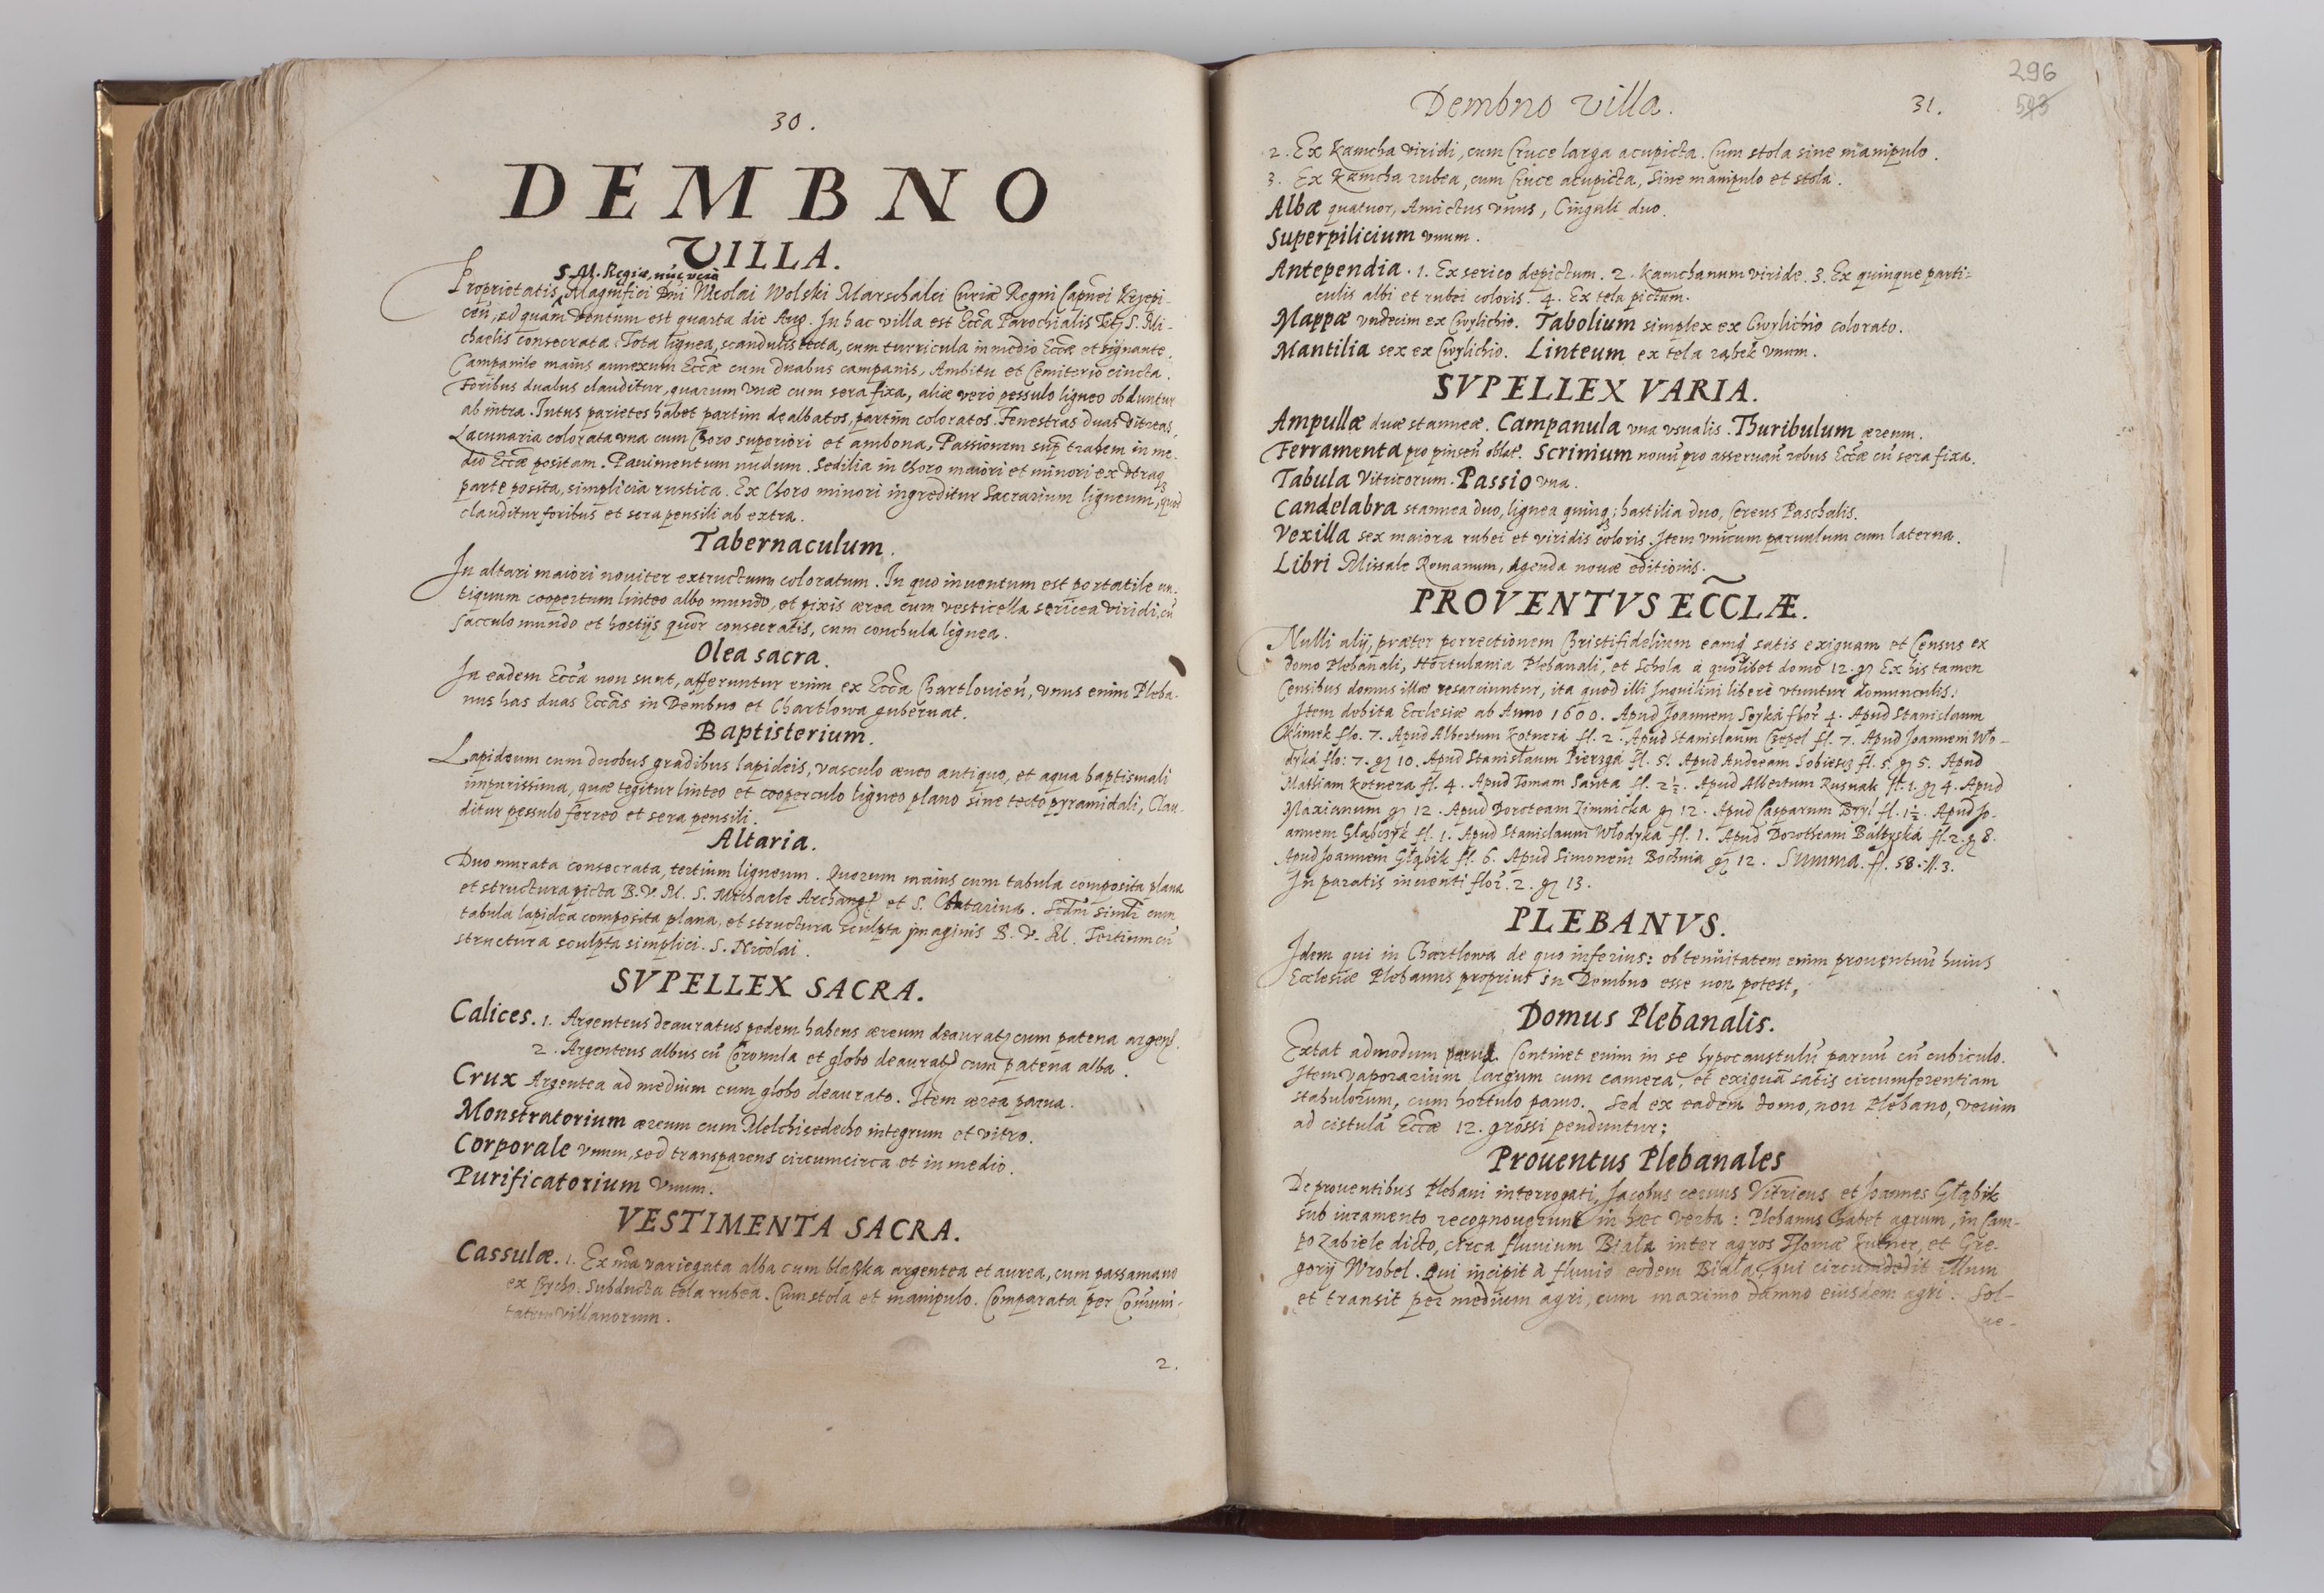 30.
DEMBNO
VILLA.
S. M. Regiæ, nūc verò
Proprietatis Magnifici Dn̄i Nicolai Wolski Marschalci Curiæ Regni Capnei Krzepi-
cen̄, ad quam ventum est quarta die Aug. In hac villa est Ecc̄a Parochialis Tit. S. Mi-
chaelis consecrata. Tota lignea, scandulis tecta, cum turricula in medio Ecc̄æ et signante.
Campanile maius annexum Ecc̄æ cum duabus campanis, Ambitu et Cemiterio cincta.
Foribus duabus clauditur, quarum vnæ cum sera fixa, aliæ verò pessulo ligneo obduntur
ab intra. Intus parietes habet partim dealbatos, partim coloratos. Fenestras duas vitreas,
Lacunaria colorata vna cum Choro superiori et ambona, Passionem sup̄ trabem in me-
dio Ecc̄æ positam. Pauimentum nudum. Sedilia in Choro maiori et minori ex vtraq;
parte posita, simplicia rustica. Ex Choro minori ingreditur Sacrarium ligneum, quod
clauditur foribus et sera pensili ab extra.
Tabernaculum.
In altari maiori nouiter extructum coloratum. In quo inuentum est portatile an-
tiquum coopertum linteo albo mundo, et pixis ærea cum vesticella sericea viridi, cū
sacculo mundo et hostijs quor consecratis, cum conchula lignea.
Olea sacra.
In eadem Ecc̄a non sunt, afferuntur enim ex Ecc̄a Chartlouien̄, vnus enim Pleba-
nus has duas Ecc̄as in Dembno et Chartlowa gubernat.
Baptisterium.
Lapideum cum duobus gradibus lapideis, vasculo æneo antiquo, et aqua baptismali
impurissima, quæ tegitur linteo et cooperculo ligneo plano sine tecto pyramidali, Clau-
ditur pessulo ferreo et sera pensili.
Altaria.
Duo murata consecrata, tertium ligneum. Quorum maius cum tabula composita plana
et structura picta B. V. M. S. Michaele Archang. et S. Catarina. Scd̄m simili cum
tabula lapidea composita plana, et structura sculpta imaginis B. V. M. Tertium cū
structura sculpta simplici. S. Nicolai.
SVPELLEX SACRA.
Calices. 1. Argenteus deauratus pedem habens æreum deaurat, cum patena argen.
2. Argenteus albus cū Coronula et globo deaurat, cum patena alba.
Crux Argentea ad medium cum globo deaurato. Item ærea parua.
Monstratorium æreum cum Melchisedecho integrum et vitro.
Corporale vnum, sed transparens circumcirca et in medio.
Purificatorium vnum.
VESTIMENTA SACRA.
Cassulæ. 1. Ex mā variegata alba cum blaszka argentea et aurea, cum passamano
ex . Subducta tela rubea. Cum stola et manipulo. Comparata per Com̄uni-
tatem villanorum.
2.
296
593
Dembno villa. 31.
2. Ex Kamcha viridi, cum Cruce larga acupicta. Cum stola sine manipulo.
3. Ex Kamcha rubea, cum Cruce acupicta, sine manipulo et stola.
Albæ quatuor, Amictus vnus, Cinguli duo.
Superpilicium vnum.
Antependia. 1. Ex serico depictum. 2. Kamchanum viride. 3. Ex quinque parti-
culis albi et rubei coloris. 4. Ex tela pictum.
Mappæ vndecim ex Cwylichio. Tabolium simplex ex Cwylichio colorato.
Mantilia sex ex Cwylichio. Linteum ex tela rąbek vnum.
SVPELLEX VARIA.
Ampullæ duæ stanneæ. Campanula vna vsualis. Thuribulum æreum.
Ferramenta pro pinsen̄ oblat. Scrinium nouū pro asseruan̄ rebus Ecc̄æ cū sera fixa.
Tabula Vitricorum. Passio vna.
Candelabra stannea duo, lignea quinq; hastilia duo, Cereus Paschalis.
Vexilla sex maiora rubei et viridis coloris. Item vnicum paruulum cum laterna.
Libri Missale Romanum, Agenda nouæ editionis.
PROVENTVS ECCLÆ.
Nulli alij, præter porrectionem Christifidelium eamq; satis exiguam et Census ex
domo Plebanali, Hortulania Plebanali, et Schola à quolibet domo 12. gr Ex his tamen
Censibus domus illæ resarciuntur, ita quod illi Inquilini liberè vtuntur domunculis.
Item debita Ecclesiæ ab Anno 1600. Apud Joannem Seyka flor 4. Apud Stanislaum
Klimek flo. 7. Apud Albertum Kotnera fl. 2. Apud Stanislaum Czepel fl. 7. Apud Joannem Wło-
dyka flo: 7. gr 10. Apud Stanislaum Pierzga fl. 5. Apud Andream Sobiesz fl. 5. gr 5. Apud
Mathiam Kotnera fl. 4. Apud Tomam Santa fl. 2½. Apud Albertum Rusnak fl. 1. gr 4. Apud
Marianum gr 12. Apud Doroteam Zimnicka gr 12. Apud Casparum Bryl fl. 1½. Apud Jo-
annem Głąbczyk fl. 1. Apud Stanislaum Włodyka fl. 1. Apud Dorotheam Bałtyska fl. 2. gr 8.
Apud Joannem Głąbik fl. 6. Apud Simonem Bochnia gr 12. Summa. fl. 58. 3.
In paratis inuenti flor. 2. gr 13.
PLEBANVS.
Idem qui in Chartlowa de quo inferius: ob tenuitatem enim prouentuū huius
Ecclesiæ Plebanus proprius in Dembno esse non potest,
Domus Plebanalis.
Extat admodum parua. Continet enim in se hypocaustulū paruū cū cubiculo.
Item vaporarium largum cum camera, et exiguā satis circumferentiam
stabulorum, cum hortulo paruo. Sed ex eadem domo, non Plebano, verùm
ad cistulā Ecc̄æ 12. grossi penduntur;
Prouentus Plebanales
De prouentibus Plebani interrogati, Jacobus ceruus Vitricus et Joannes Głąbik
sub iuramento recognouerunt in hæc verba: Plebanus habet agrum, in Cam-
po Zabiele dicto, circa fluuium Biała inter agros Thomæ Kutner, et Gre-
gorij Wrobel. Qui incipit à fluuio eodem Biała, qui circumdedit illum
et transit per medium agri, cum maximo damno eiusdem agri. Sol-
ue-